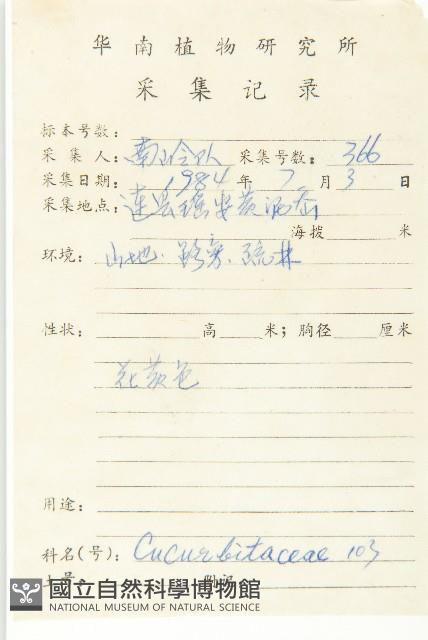 华南植物研究所
采集记录
标本号数:
采集人: 南岭队 采集号数: 366
采集日期: 1984 年 7 月 3 日
采集地点: 连县瑶安黄泥
海拨 米
环境: 山地.路旁.疏林
性状: 高 米; 胸径 厘米
花黄色
用途:
科名(号): Cucurbitaceae 103
國立自然科學博物館
NATIONAL MUSEUM OF NATURAL SCIENCE